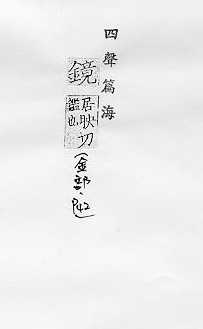 四聲篇海
鏡
居映切
鑑也
(金部、P42)